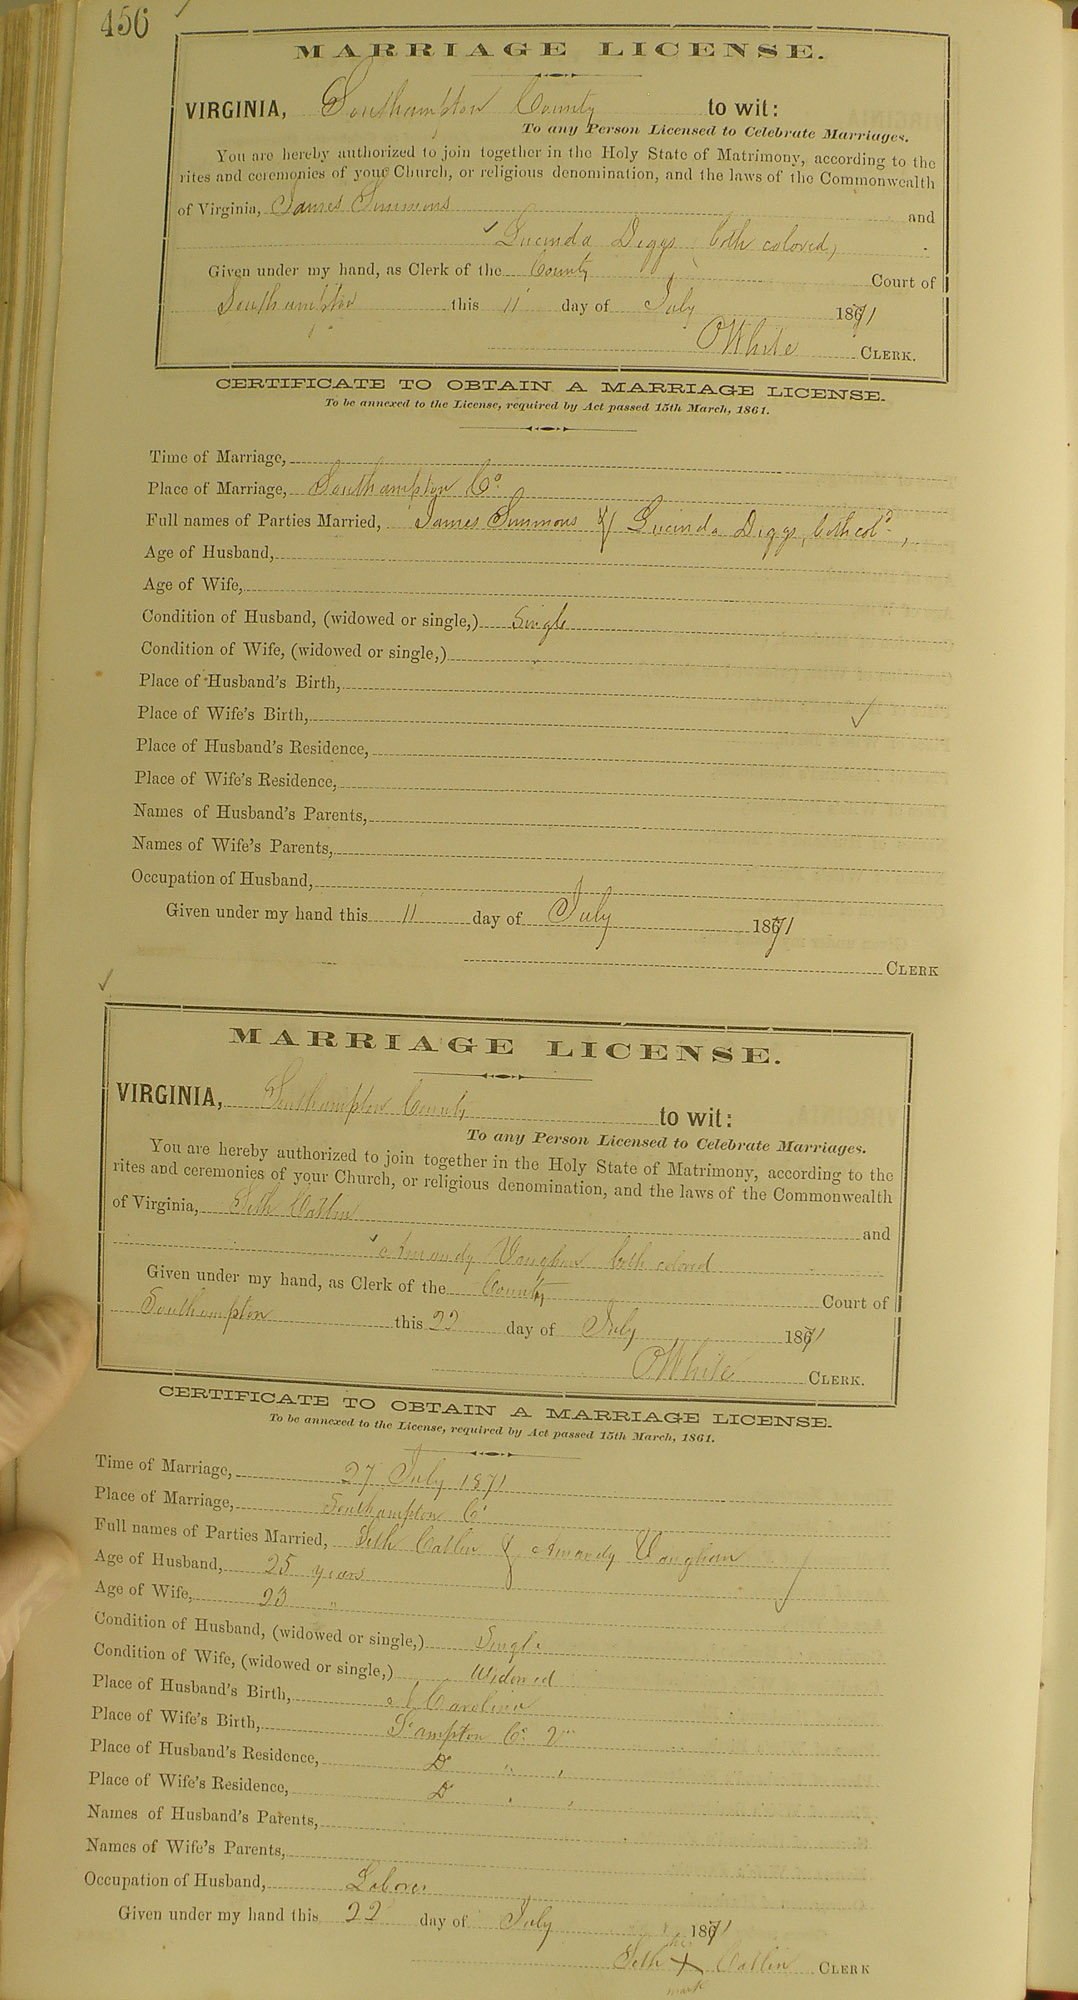 456
MARRIAGE LICENSE.
VIRGINIA, Southampton County to wit:
To any Person Licensed to Celebrate Marriages.
You are hereby authorized to join together in the Holy State of Matrimony, according to the
rites and ceremonies of your Church, or religious denomination, and the laws of the Commonwealth
of Virginia, James Simmons and
Lucinda Diggs, both colored,
Given under my hand, as Clerk of the County Court of
Southampton this 11 day of July 1871
White CLERK.
CERTIFICATE TO OBTAIN A MARRIAGE LICENSE.
To be annexed to the License, required by Act passed 15th March, 1861.
Time of Marriage,
Place of Marriage, Southampton Co.
Full names of Parties Married, James Simmons & Lucinda Diggs, both cold,
Age of Husband,
Age of Wife,
Condition of Husband, (widowed or single,) Single
Condition of Wife, (widowed or single,)
Place of Husband's Birth,
Place of Wife's Birth,
Place of Husband's Residence,
Place of Wife's Residence,
Names of Husband's Parents,
Names of Wife's Parents,
Occupation of Husband,
Given under my hand this 11 day of July 1871
CLERK
MARRIAGE LICENSE.
VIRGINIA, Southampton County to wit:
To any Person Licensed to Celebrate Marriages.
You are hereby authorized to join together in the Holy State of Matrimony, according to the
rites and ceremonies of your Church, or religious denomination, and the laws of the Commonwealth
of Virginia, Seth Catlin and
Amandy Vaughan both colored
Given under my hand, as Clerk of the County Court of
Southampton this 22 day of July 1871
White CLERK.
CERTIFICATE TO OBTAIN A MARRIAGE LICENSE.
To be annexed to the License, required by Act passed 15th March, 1861.
Time of Marriage, 27 July 1871
Place of Marriage, Southampton Co
Full names of Parties Married, Seth Catlin & Amandy Vaughan
Age of Husband, 25 years
Age of Wife, 23 "
Condition of Husband, (widowed or single,) Single
Condition of Wife, (widowed or single,) Widowed
Place of Husband's Birth, N Carolina
Place of Wife's Birth, S'ampton Co Va
Place of Husband's Residence, Do " "
Place of Wife's Residence, Do " "
Names of Husband's Parents,
Names of Wife's Parents,
Occupation of Husband, Laborer
Given under my hand this 22 day of July 1871
his
Seth X Catlin CLERK
mark